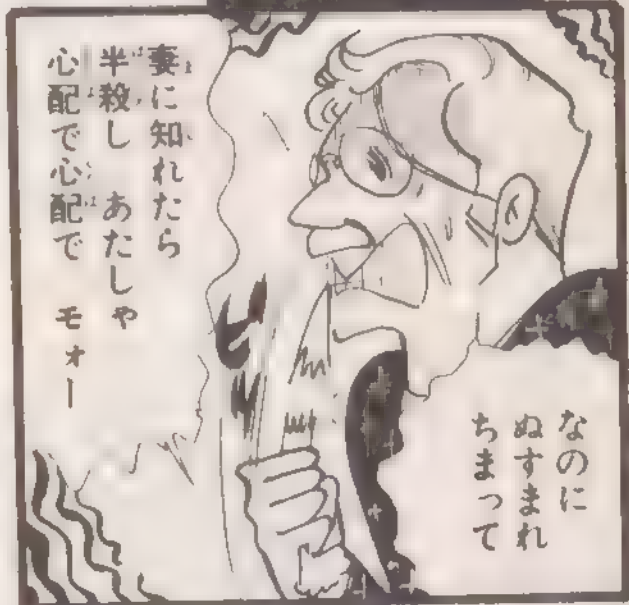 なのに
ぬすまれ
ちまって
妻に知れたら
半殺し あたしゃ
心配で心配で モォー